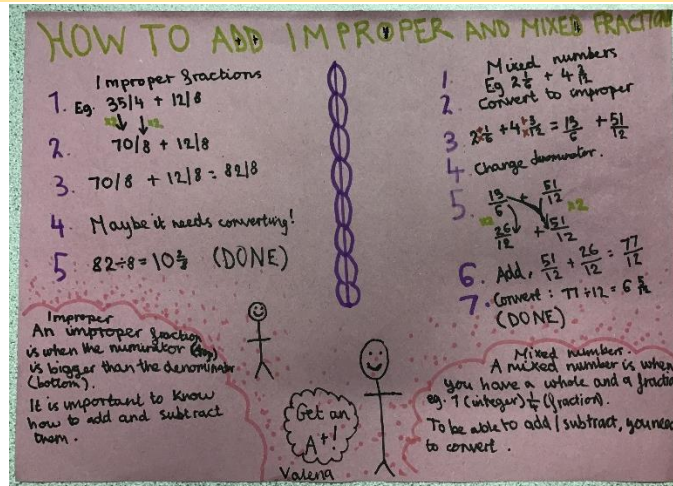 HOW TO ADD IMPROPER AND MIXED FRACTION
Improper fractions
1. Eg. 35/4 + 12/8
×2 ×2
2. 70/8 + 12/8
3. 70/8 + 12/8 = 82/8
4. Maybe it needs converting!
5 82÷8 = 10 2/8 (DONE)
Improper
An improper fraction
is when the numinator (top)
is bigger than the denominator
(bottom).
It is important to know
how to add and subtract
them.
Get an
A+!
Valeria
Mixed numbers
1. Eg 2 1/6 + 4 3/12
2. Convert to improper
3. 2 1/6 + 4 3/12 = 13/6 + 51/12
4. Change denominator.
5. 13/6 + 51/12
×2 ×2
26/12 + 51/12
6. Add, 51/12 + 26/12 = 77/12
7. Convert: 77÷12 = 6 5/12
(DONE)
Mixed number.
A mixed number is when
you have a whole and a fractio
eg. 7 (integer) 1/4 (fraction).
To be able to add / subtract, you need
to convert.